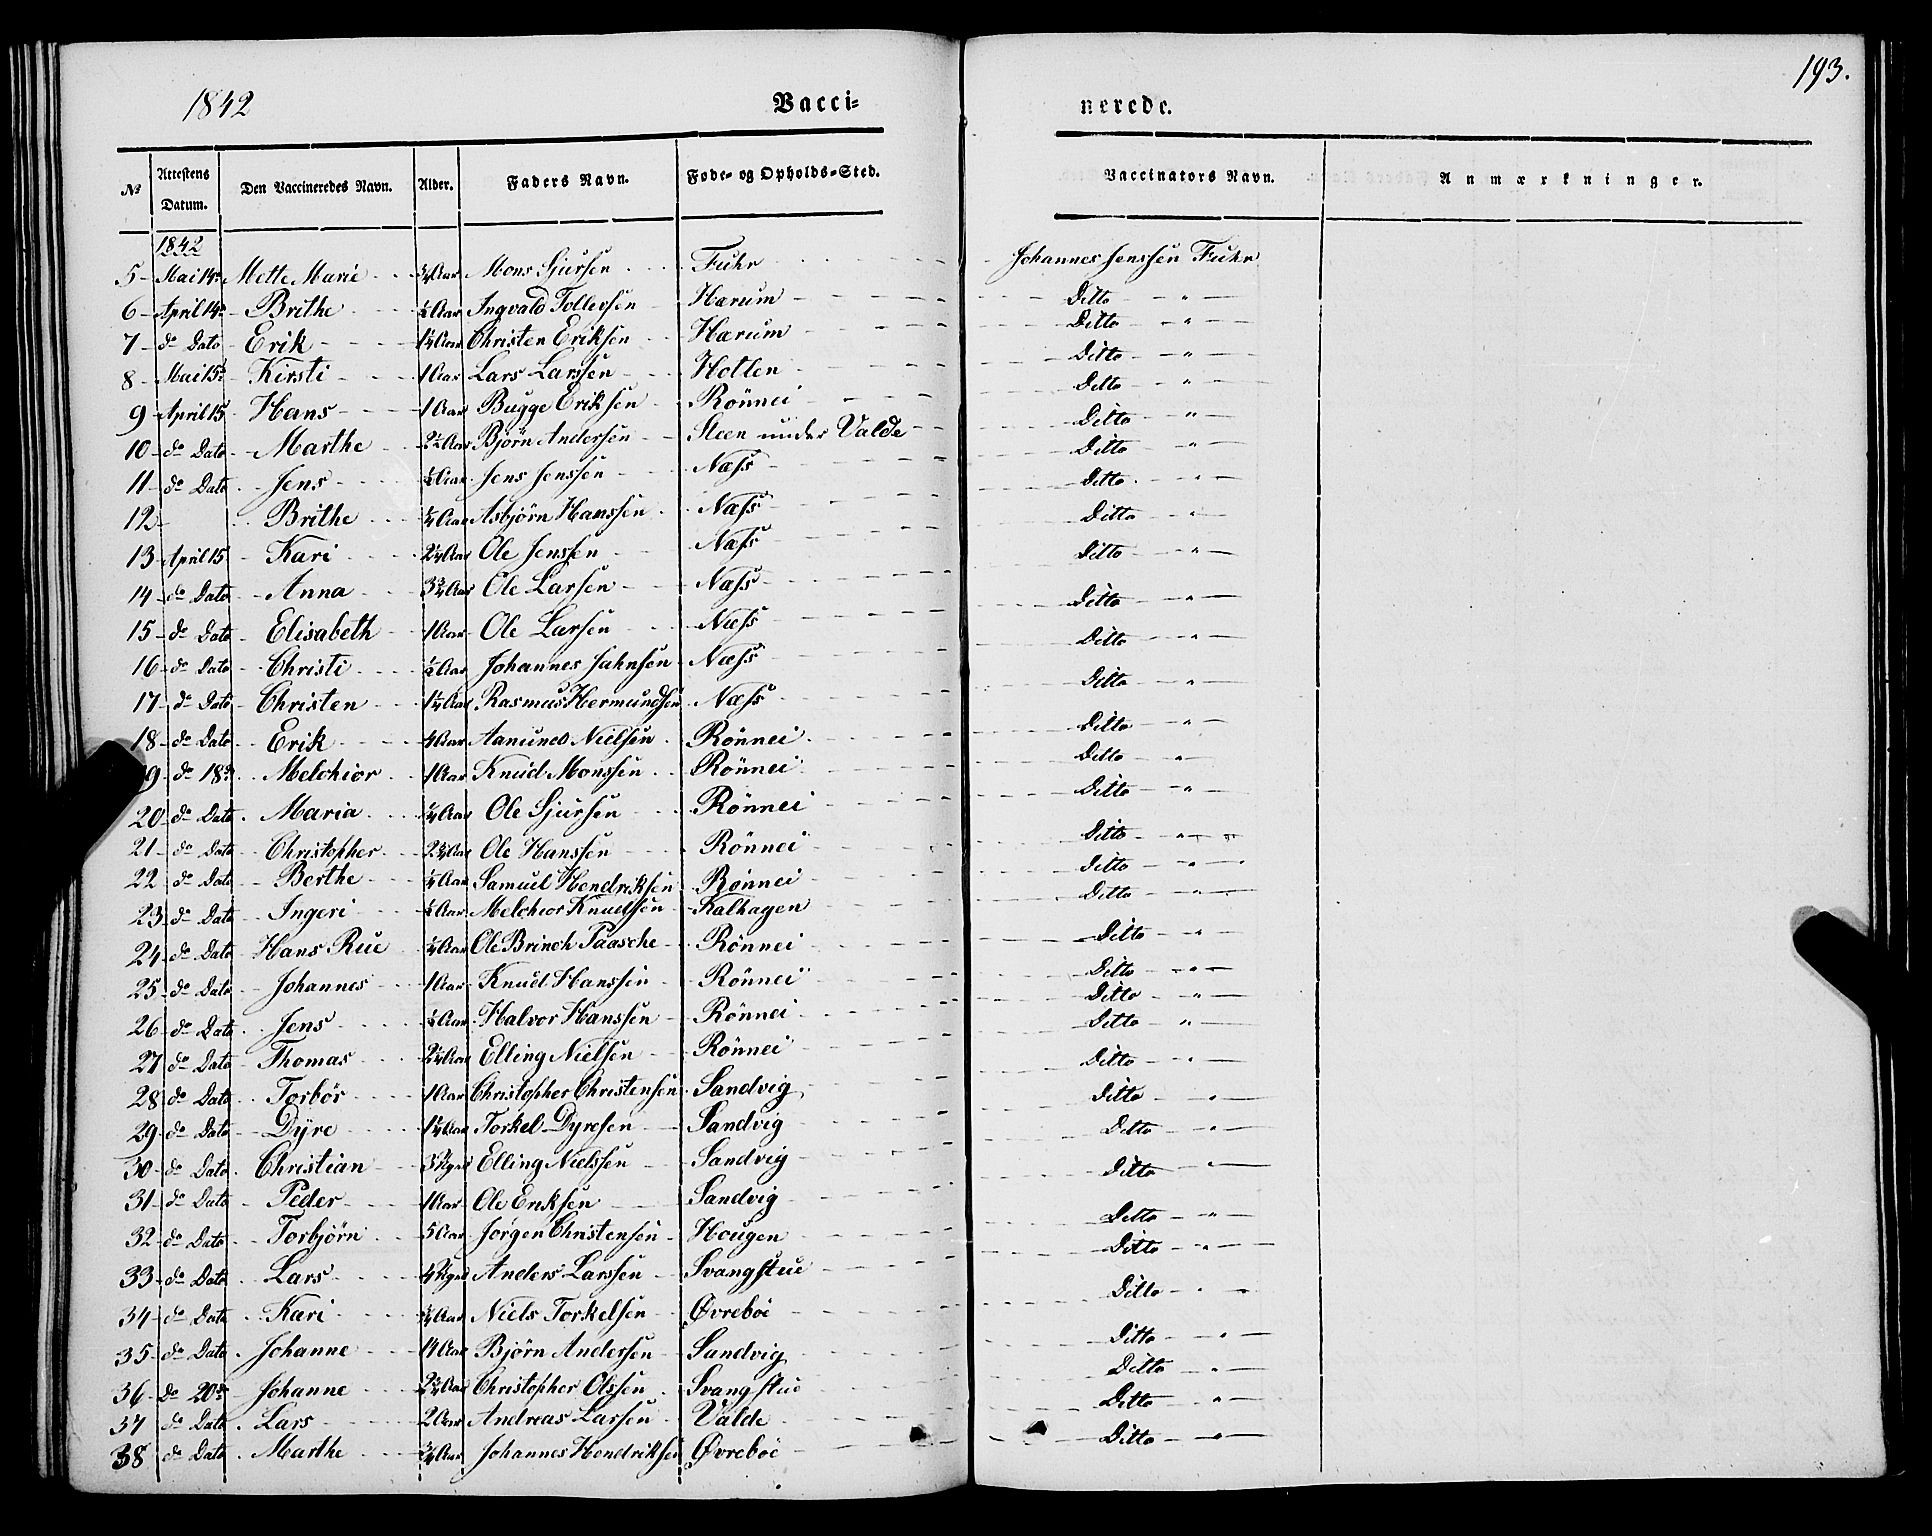 193.
1842 Vacci- nerede.
No Attestens Datum. Den Vaccineredes Navn. Alder. Faders Navn. Føde- og Opholds-Sted. Vaccinators Navn. Anmærkninger.
1842
5 Mai 14de Mette Marie ¾ Aar Mons Sjursen Fuhr Johannes Jenssen Fuhr
6 April 14de Brithe Aar Ingvald Tollefsen Harum Ditto "
7 do Dato Erik Aar Christen Eriksen Harum Ditto "
8 Mai 15de Kirsti 1 Aar Lars Larssen Hollen Ditto "
9 April 15 Hans 1 Aar Bugge Eriksen Rönnei Ditto "
10 do Dato Marthe Aar Bjørn Andersen Steen under Valde Ditto "
11 do Dato Jens Aar Jens Jenssen Næss Ditto "
12 Brithe Aar Asbjörn Hanssen Næss Ditto "
13 April 15 Kari Aar Ole Jenssen Næss Ditto "
14 do Dato Anna Aar Ole Larsen Næss Ditto "
15 do Dato Elisabeth 1 Aar Ole Larsen Næss Ditto "
16 do Dato Christi Aar Johannes Jahnsen Næss Ditto "
17 do Dato Christen Aar Rasmus Hermundsen Næss Ditto "
18 do Dato Erik Aar Aamund Nielsen Rönnei Ditto "
9 do 18de Melchior 1 Aar Knud Monssen Rönnei Ditto "
20 do Dato Maria Aar Ole Sjursen Rönnei Ditto "
21 do Dato Christopher Aar Ole Hanssen Rönnei Ditto "
22 do Dato Berthe Aar Samuel Hendriksen Rönnei Ditto "
23 do Dato Ingeri Aar Melchior Knudssen Kalhagen Ditto "
24 do Dato Hans Rue Aar Ole Brinch Paasche Rönnei Ditto "
25 do Dato Johannes 1 Aar Knud Hanssen Rönnei Ditto "
26 do Dato Jens Aar Halvor Hanssen Rönnei Ditto "
27 do Dato Thomas Aar Elling Nielsen Rönnei Ditto "
28 do Dato Torbör 1 Aar Christopher Christensen Sandvig Ditto "
29 do Dato Dÿre Aar Torkel Dyresen Sandvig Ditto "
30 do Dato Christian Elling Nielssen Sandvig Ditto "
31 do Dato Peder 1 Aar Ole Eriksen Sandvig Ditto "
32 do Dato Torbjørn 5 Aar Jørgen Christensen Hougen Ditto "
33 do Dato Lars Anders Larssen Svangstue Ditto "
34 do Dato Kari Aar Niels Torkelsen Øvreboe Ditto "
35 do Dato Johanne Aar Bjørn Andersen Sandvig Ditto "
36 do 20de Johanne Aar Christopher Olssen Svangstue Ditto "
37 do Dato Lars 2 Aar Andreas Larsen Valde Ditto "
38 do Dato Marthe Aar Johannes Hendriksen Øvreboe